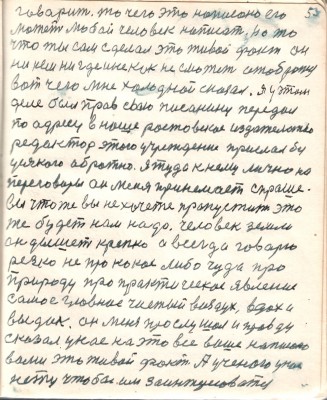 говарит. то чего это написано его
может любой человек написат, но то
что ты сам сделал это живой факт он
ни кем ни где никак не сможет отоброжу
вот чего мне холодной сказал. Я у этом
деле был прав свою писанину передал
по адресу в наше ростовское издательство
редактор этого учреждение прислал бу
обратно. Я туда к нему лично на
переговоры он меня принемает спраше-
вы что же вы не хочете прапустит это
же будет нам надо. человек земли
он дышет крепко а всегда говарю
резко не про какое либо чуда про
природу про практическое явление
самое главное чистый воздух, вдох и
выдих. он меня прослушал и правду
сказал у нас на это все ваше написано
вами это живой факт. А ученого у нас
нету чтобы им заинтисовату